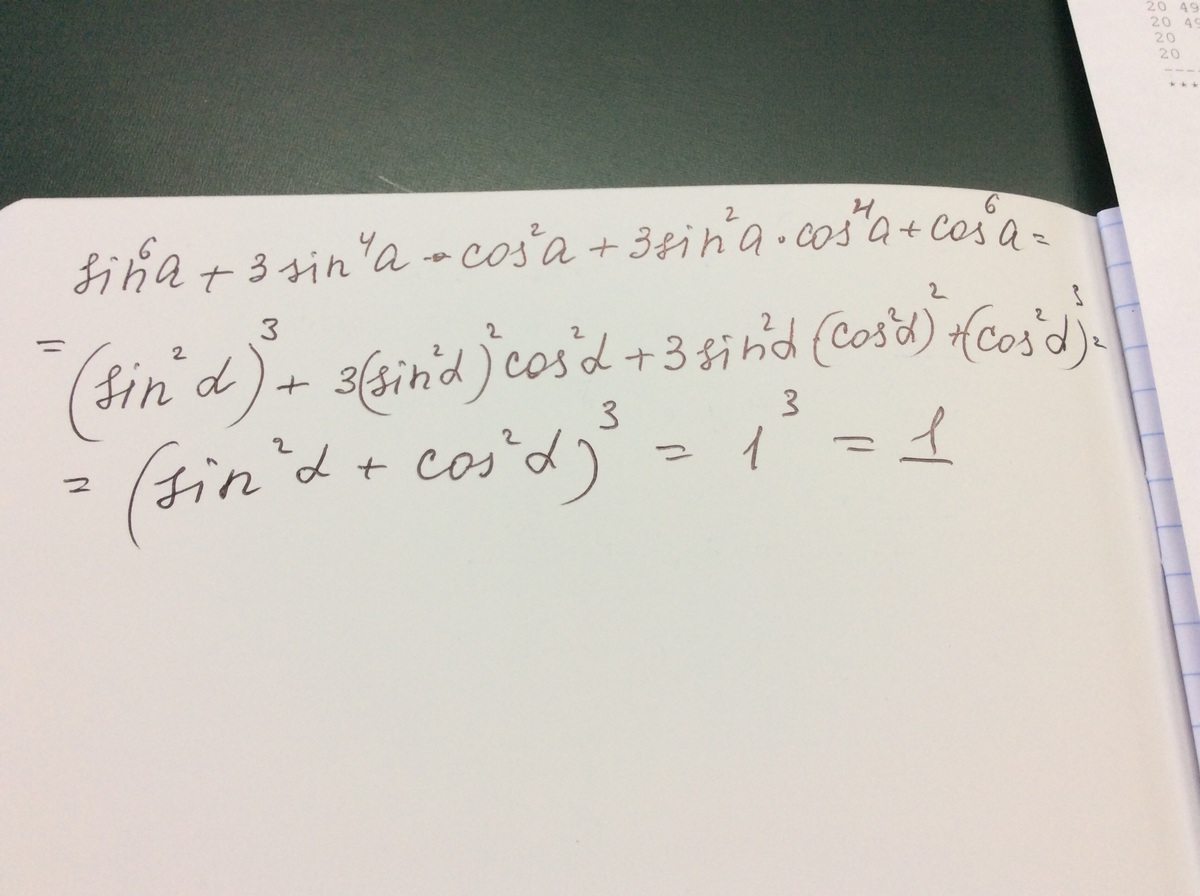 20 49
20 49
20
20
----
***
sin⁶a + 3 sin⁴a · cos²a + 3 sin²a · cos⁴a + cos⁶a =
= (sin²α)³ + 3(sin²α)²cos²α + 3 sin²α (cos²α)² + (cos²α)³ =
= (sin²α + cos²α)³ = 1³ = 1